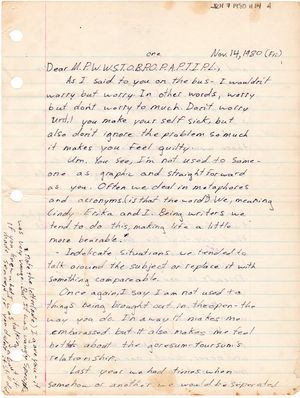 one
Nov. 14, 1980 (Fri.)
Dear M.P.W.W.S.T.O.B.P.O.P.A.P.T.I.P.L.,
As I said to you on the bus- I wouldn't
worry but worry. In other words, worry
but don't worry to much. Don't worry
until you make your self sick, but
also don't ignore the problem so much
it makes you feel guilty.
Um. You see, I'm not used to some-
one as graphic and straight forward
as you. Often we deal in metaphores
and acronyms (is that the word?) We, meaning
Cindy, Erika and I. Being writers we
tend to do this, making life a little
more bearable.*
Indelicate situations we tended to
talk around the subject or replace it with
something compareable.
Once again, I say I am not used to
things being brought out in the open- the
way you do. In a way it makes me
embarassed but it also makes me feel
better about the
relationship.
Last year we had times when
somehow or another we would be separated